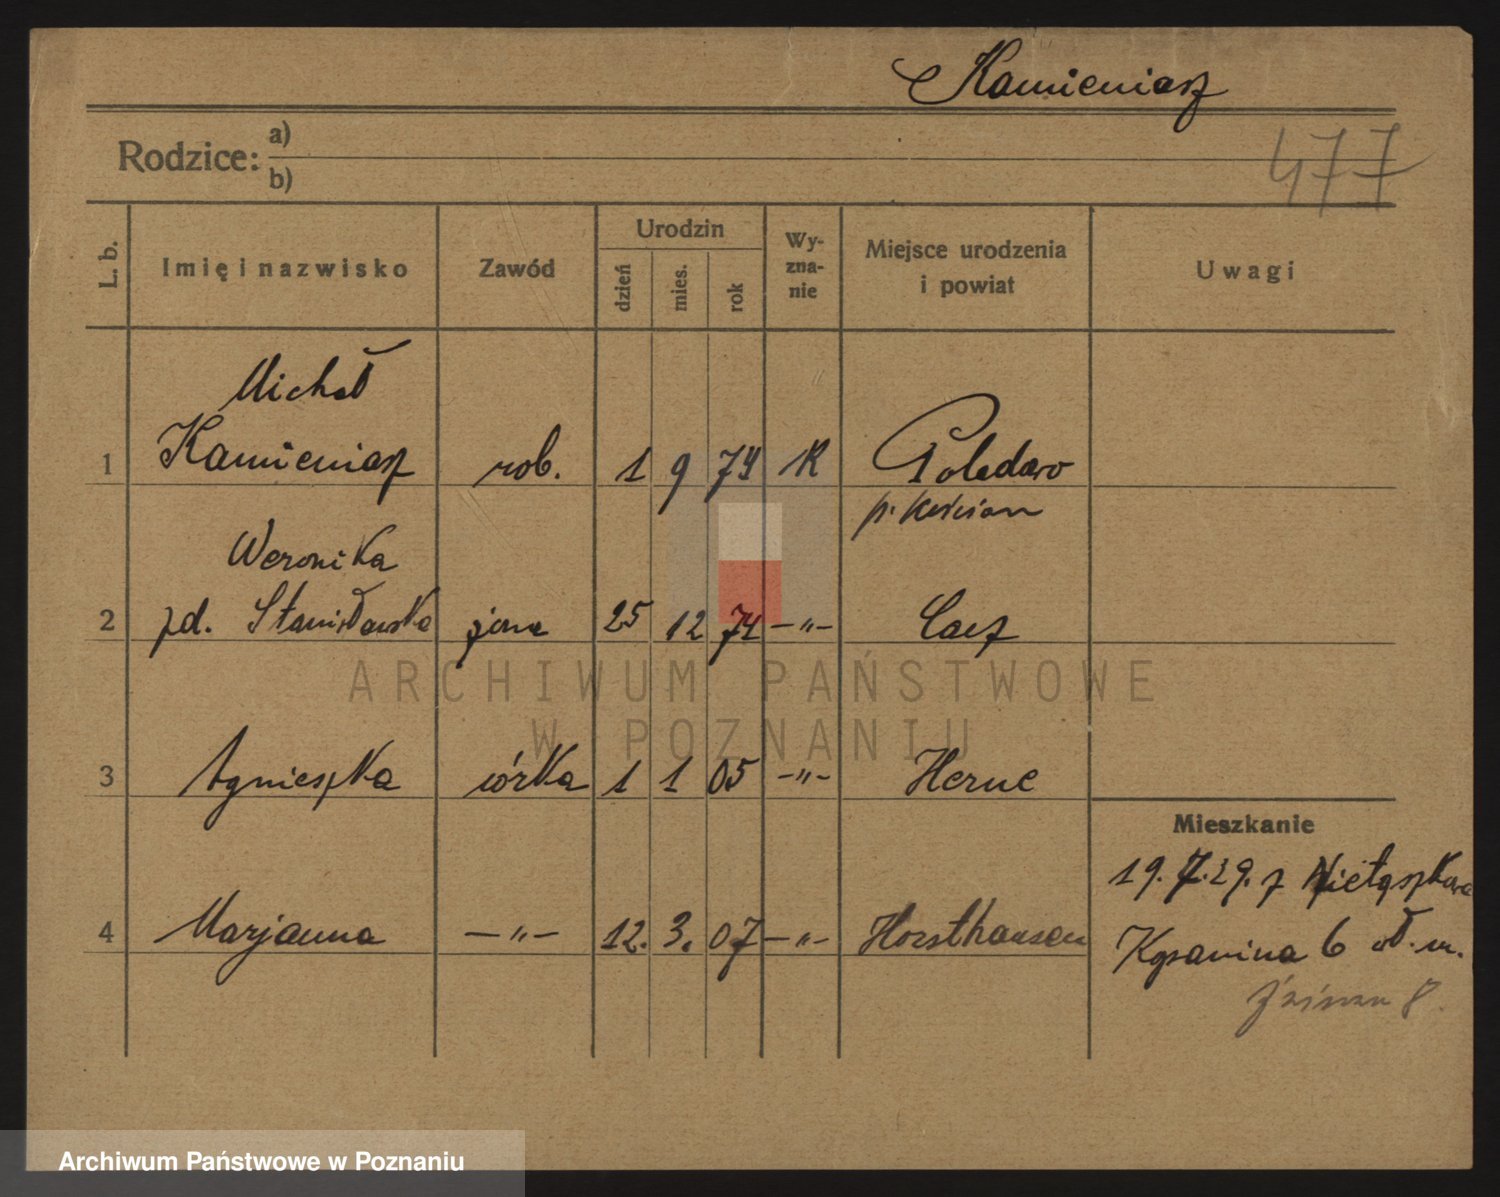 Kamieniarz
477
Rodzice: a)
b)
L. b. Imię i nazwisko Zawód Urodzin dzień mies. rok Wy-zna-nie Miejsce urodzenia i powiat Uwagi
Michał
1 Kamieniarz rob. 1 9 74 K Poladowo
p. Kościan
Weronika
2 zd. Stanisławska żona 25 12 74 -"- Łącz
ARCHIWUM PAŃSTWOWE
W POZNANIU
3 Agnieszka córka 1 1 05 -"- Herne
Mieszkanie
19. 7. 29. z Nietążkowa
4 Marjanna -"- 12. 3. 07 -"- Horsthausen
6 wł. m.
8
Archiwum Państwowe w Poznaniu